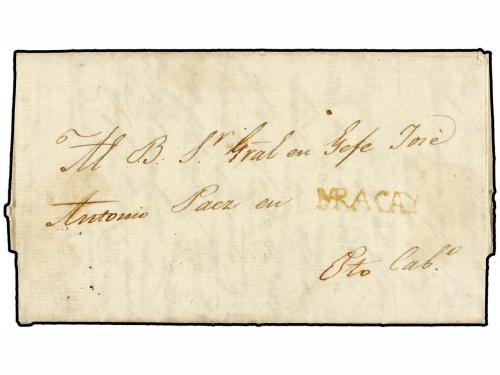 Al B. S.r Gral en Gefe José
Antonio Paez en MRACAY
Pto Cab.o